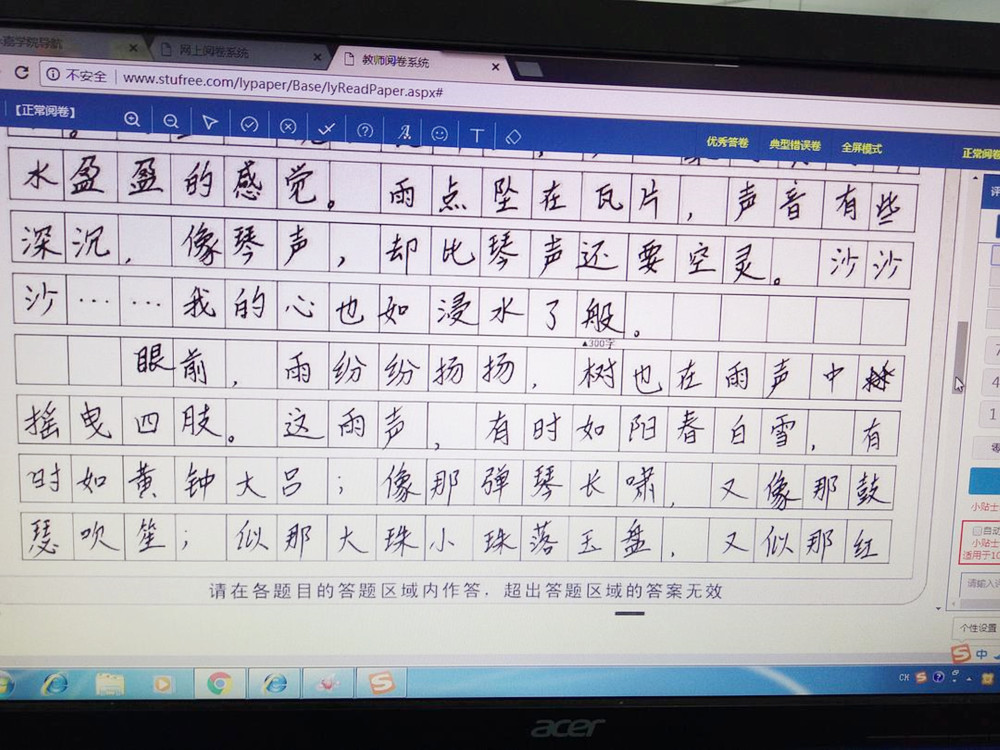 嘉学院导航
网上阅卷系统
教师阅卷系统
不安全 www.stufree.com/lypaper/Base/lyReadPaper.aspx#
【正常阅卷】
优秀答卷 典型错误卷 全屏模式
正常阅卷
水盈盈的感觉。雨点坠在瓦片，声音有些
深沉，像琴声，却比琴声还要空灵。沙沙
沙……我的心也如浸水了般。
▲300字
眼前，雨纷纷扬扬，树也在雨声中
摇曳四肢。这雨声，有时如阳春白雪，有
时如黄钟大吕；像那弹琴长啸，又像那鼓
瑟吹笙；似那大珠小珠落玉盘，又似那红
请在各题目的答题区域内作答，超出答题区域的答案无效
小贴士
自动
小贴士
适用于10
请输入
个性设置
中
CH
acer